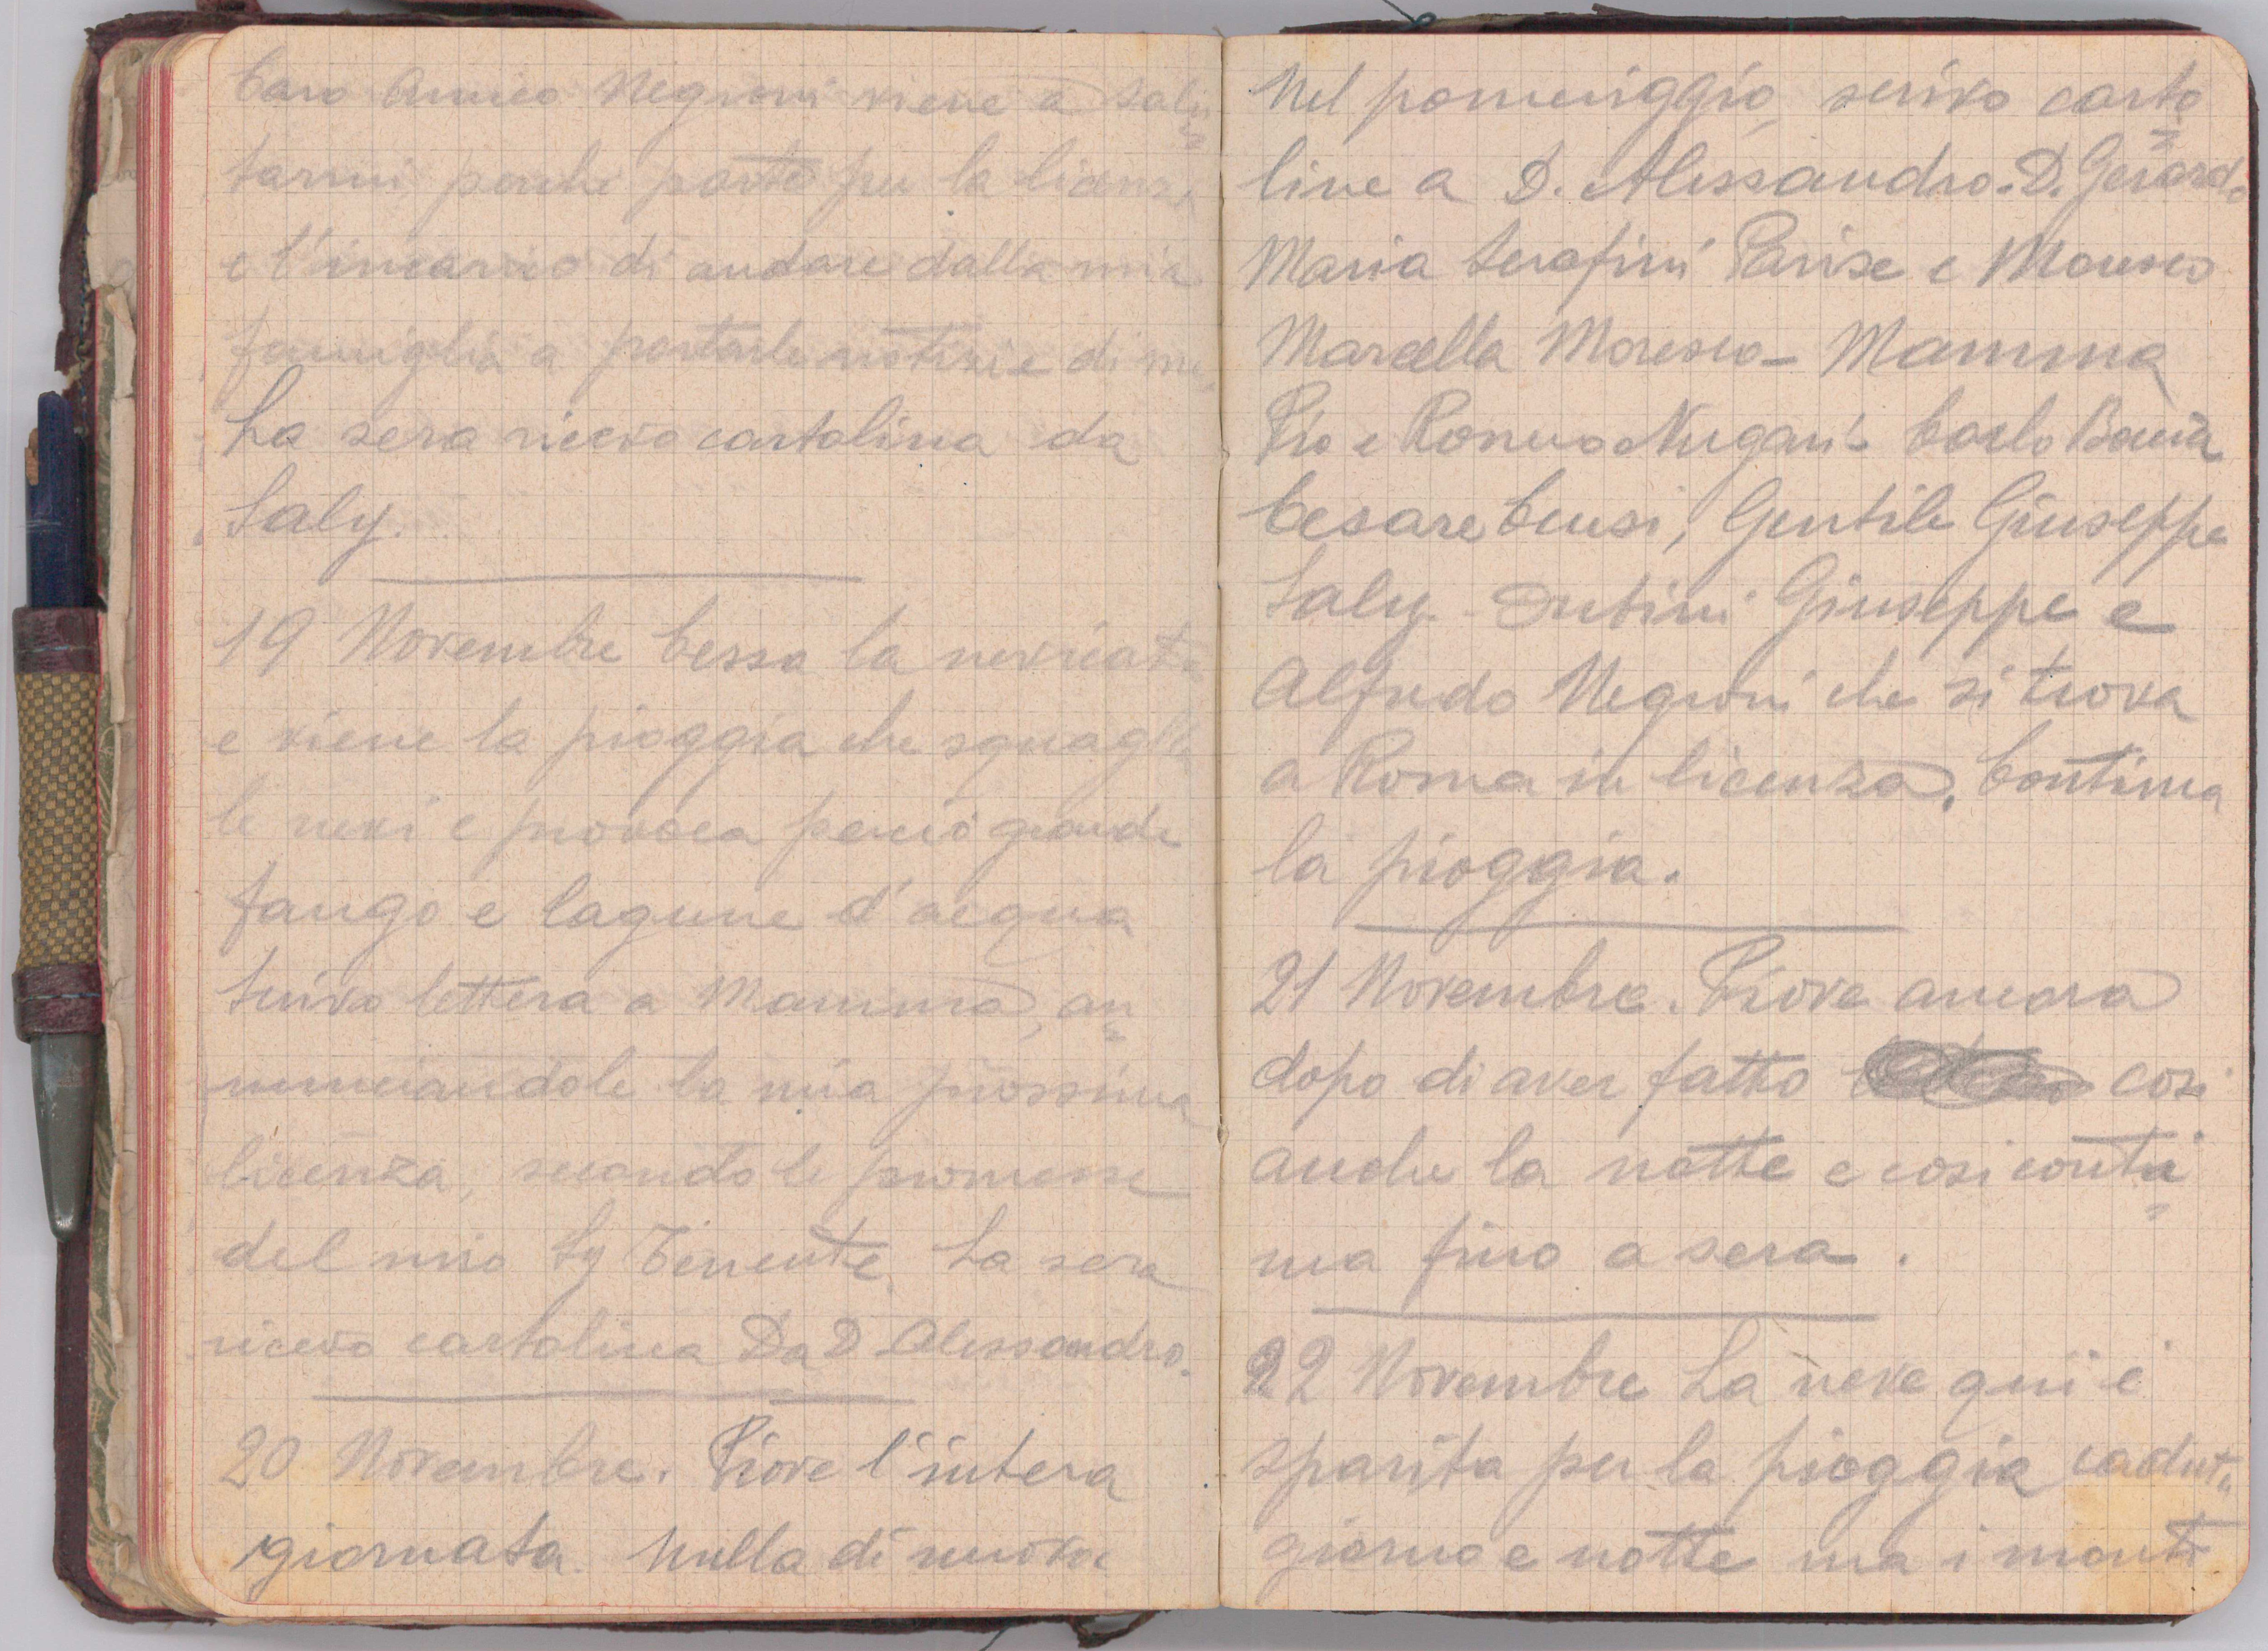 Caro Amico Negroni viene a salu=
tarmi perche parte per la licenza
e l'incarico di andare dalla mia
famiglia a portarle notizie di me.
La sera ricevo cartolina da
Saly.
19 Novembre Cessa la nevicata
e viene la pioggia che squaglia
le nevi e provoca perciò grande
fango e lagune d'acqua
Scrivo lettera a Mamma, an=
nunciandole la mia prossima
licenza, secondo le promesse
del mio Sg Tenente. La sera
ricevo cartolina Da D Alessandro.
20 Novembre. Piove l'intera
giornata. Nulla di nuovo
Nel pomeriggio, scrivo carto=
line a D. Alessandro. D. Gerardo
Maria Serafini Parise e Moresco
Marcella Moresco - Mamma
Pio e Romeo Nugari - Carlo
Cesare Censi, Gentile Giuseppe
Saly - Giuseppe e
Alfredo Negroni che si trova
a Roma in licenza. Continua
la pioggia.
21 Novembre. Piove ancora
dopo di aver fatto cosi
anche la notte e cosi conti=
nua fino a sera.
22 Novembre La neve qui è
sparita per la pioggia caduta
giorno e notte ma i monti